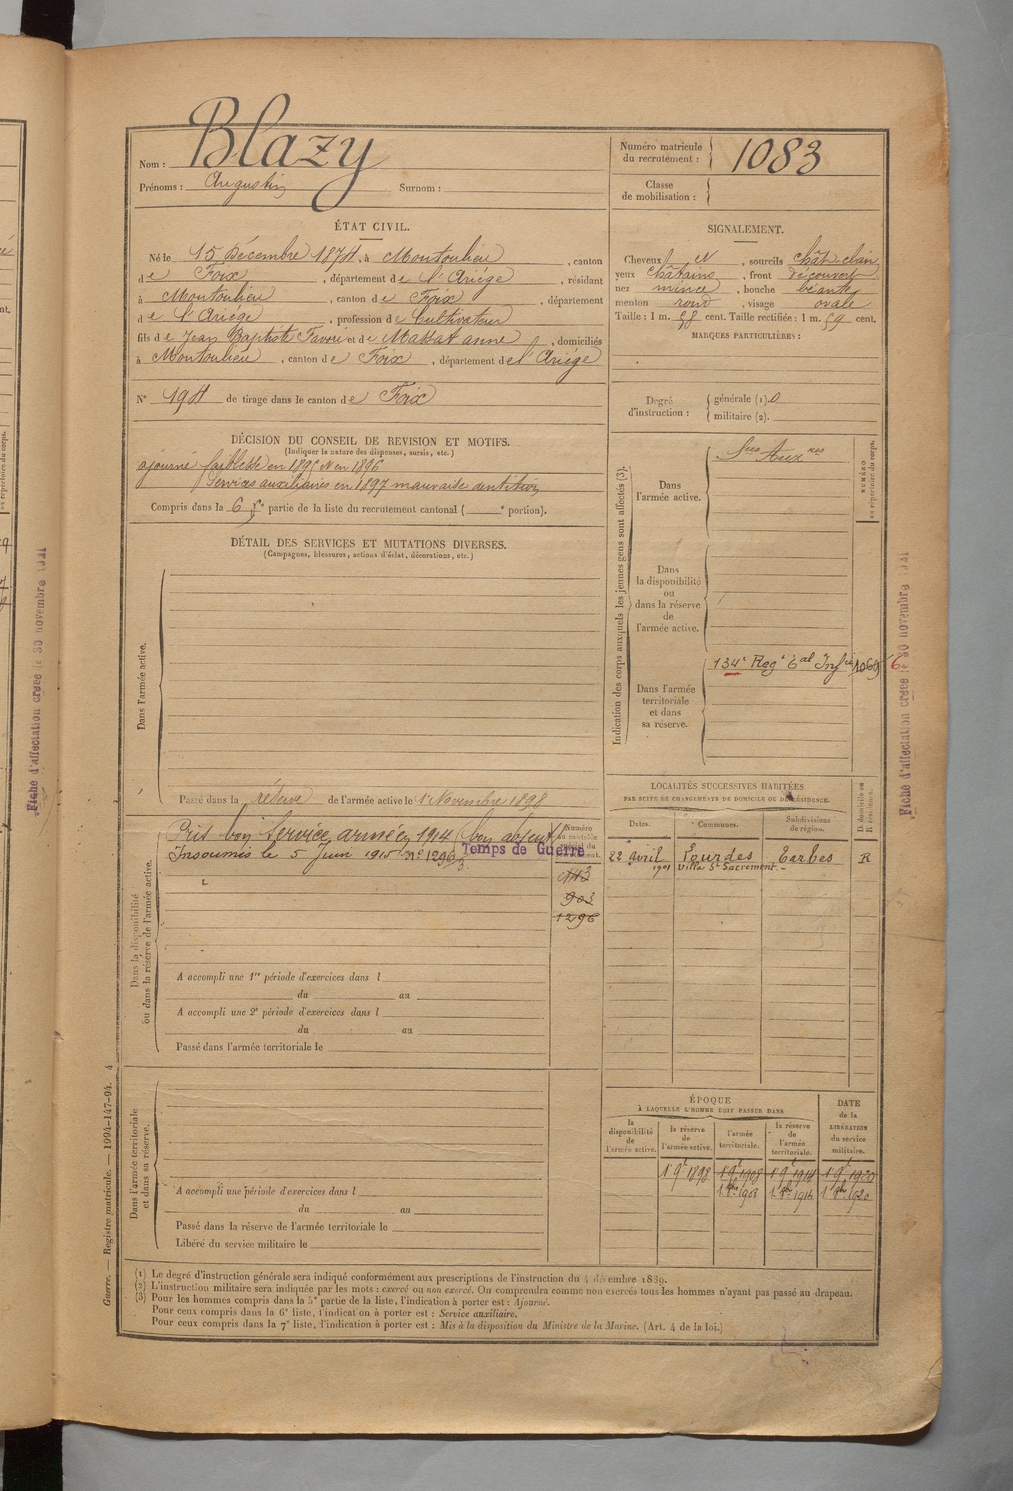 Nom : Blazy
Prénoms : Augustin Surnom :
Numéro matricule du recrutement : 1083
Classe de mobilisation :
ÉTAT CIVIL.
Né le 15 Décembre 1874, à Montoulieu, canton
de Foix, département de l'Ariége, résidant
à Montoulieu, canton de Foix, département
de l'Ariége, profession de Cultivateur
fils de Jean Baptiste et de Massat anne, domiciliés
à Montoulieu, canton de Foix, département de l'Ariége
N° 194 de tirage dans le canton de Foix
SIGNALEMENT.
Cheveux et, sourcils chât. clair,
yeux châtains, front découvert
nez mince, bouche béante
menton rond, visage ovale
Taille : 1 m. 58 cent. Taille rectifiée : 1 m. 59 cent.
MARQUES PARTICULIÈRES :
Degré d'instruction :
générale (1). 0
militaire (2).
DÉCISION DU CONSEIL DE REVISION ET MOTIFS.
(Indiquer la nature des dispenses, sursis, etc.)
ajourné faiblesse en 1895 et en 1896
Services auxiliaires en 1897 mauvaise dentition
Compris dans la 6e partie de la liste du recrutement cantonal ( e portion).
DÉTAIL DES SERVICES ET MUTATIONS DIVERSES.
(Campagnes, blessures, actions d'éclat, décorations, etc.)
Dans l'armée active.
Passé dans la réserve de l'armée active le 1 Novembre 1898
Indication des corps auxquels les jeunes gens sont affectés (3).
NUMÉRO au répertoire du corps.
Dans l'armée active.
Sces Auxres
Dans la disponibilité ou dans la réserve de l'armée active.
Dans l'armée territoriale et dans sa réserve.
134e Regt 6al Infie
Fiche d'affectation créée le 30 novembre 1921
Fiche d'affectation créée le 30 novembre 1921
Dans la disponibilité ou dans la réserve de l'armée active.
Pris bon Service armée, 1914 (bon absent)
Insoumis le 5 Juin 1915 n° 1296
Temps de Guerre
Numéro
143
903
1296
A accompli une 1re période d'exercices dans l
du au
A accompli une 2e période d'exercices dans l
du au
Passé dans l'armée territoriale le
LOCALITÉS SUCCESSIVES HABITÉES
PAR SUITE DE CHANGEMENTS DE DOMICILE OU DE RÉSIDENCE.
Dates. Communes. Subdivisions de région. D. domicile ou R. résidence.
22 avril 1901 Lourdes Tarbes R
Villa St Sacrement
Dans l'armée territoriale et dans sa réserve.
A accompli une période d'exercices dans l
du au
Passé dans la réserve de l'armée territoriale le
Libéré du service militaire le
ÉPOQUE
À LAQUELLE L'HOMME DOIT PASSER DANS
DATE de la LIBÉRATION du service militaire.
la disponibilité de l'armée active. la réserve de l'armée active. l'armée territoriale. la réserve de l'armée territoriale.
1 9e 1898 1 9e 1908 1 9e 1914 1 9e 1920
1908 1914 1920
(1) Le degré d'instruction générale sera indiqué conformément aux prescriptions de l'instruction du 4 décembre 1889.
(2) L'instruction militaire sera indiquée par les mots : exercé ou non exercé. On comprendra comme non exercés tous les hommes n'ayant pas passé au drapeau.
(3) Pour les hommes compris dans la 5e partie de la liste, l'indication à porter est : Ajourné.
Pour ceux compris dans la 6e liste, l'indication à porter est : Service auxiliaire.
Pour ceux compris dans la 7e liste, l'indication à porter est : Mis à la disposition du Ministre de la Marine. (Art. 4 de la loi.)
Guerre. — Registre matricule. — 1994-147-94. 4